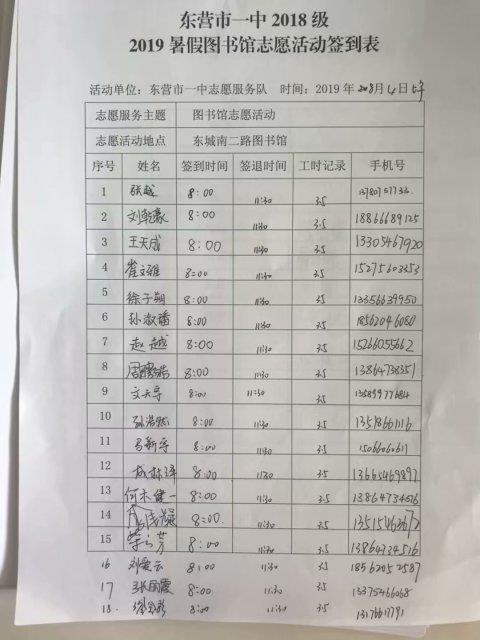 东营市一中 2018 级
2019 暑假图书馆志愿活动签到表
活动单位：东营市一中志愿服务队 时间：2019 年 8月4日
志愿服务主题 图书馆志愿活动
志愿活动地点 东城南二路图书馆
序号 姓名 签到时间 签退时间 工时记录 手机号
1 张越 8:00 11:30 3.5
2 刘乾豪 8:00 11:30 3.5 18866689125
3 王天成 8:00 11:30 3.5 13305467920
4 崔文雅 8:00 11:30 3.5 15275603353
5 徐子朔 8:00 11:30 3.5 13356639950
6 孙淑潘 8:00 11:30 3.5 18562046080
7 赵越 8:00 11:30 3.5 15266055662
8 8:00 11:30 3.5 13864738351
9 8:00 11:30 3.5 13589977684
10 孙浩然 8:00 11:30 3.5
11 8:00 11:30 3.5 15066060611
12 8:00 11:30 3.5 13665469897
13 8:00 11:30 3.5 13864734616
14 8:00 11:30 3.5
15 8:00 11:30 3.5
16 刘爱云 8:00 11:30 3.5 18562052587
17 张丽霞 8:00 11:30 3.5 13375466068
18. 8:00 11:30 3.5 13176617791